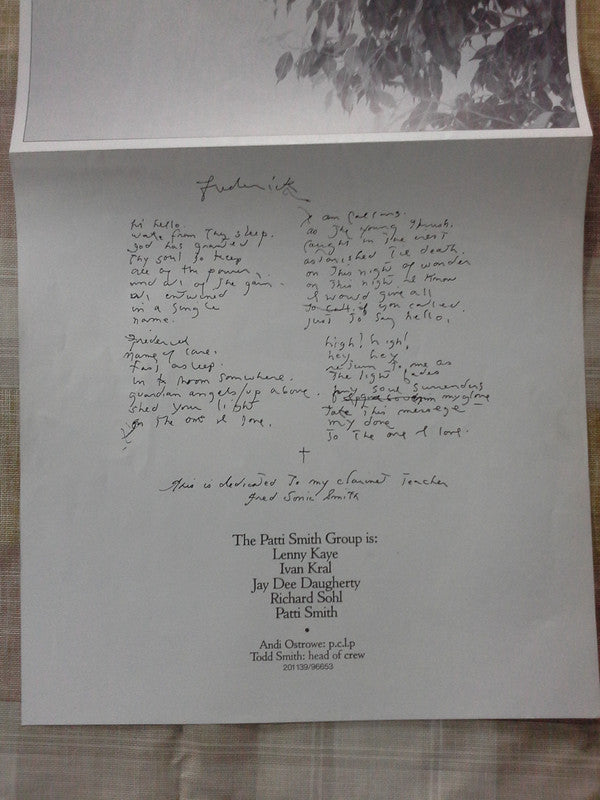 frederick
hi hello.
wake from thy sleep.
god has granted
thy soul to keep
all of the power,
and all of the gain.
all entwined
in a single
name.
Frederick
name of care.
fast asleep
in a room somewhere.
guardian angels/up above.
shed your light
on the one I love.
I am
as the young thrush,
caught in the nest
astonished til death.
on this night of wonder
on this night I know
I would give all
if you called.
just to say hello.
high, high,
hey hey
return to me as
the light fades
my soul surrenders
my glove
take this message
my dove
to the one I love.
This is dedicated to my clarinet teacher
fred sonic smith
The Patti Smith Group is:
Lenny Kaye
Ivan Kral
Jay Dee Daugherty
Richard Sohl
Patti Smith
Andi Ostrowe: p.c.l.p
Todd Smith: head of crew
201 139/96653